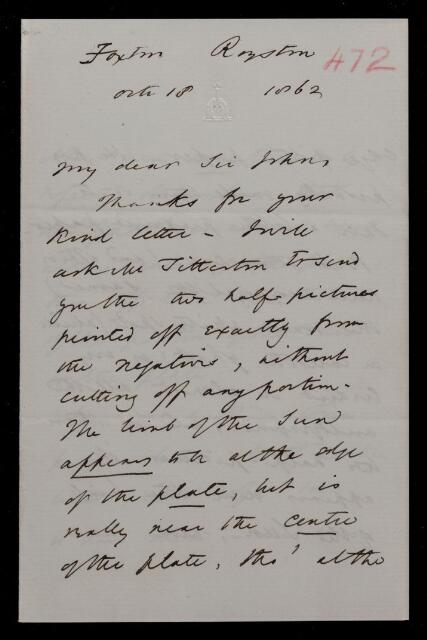 Foxton Royston
472
Octr 18 1862
My dear Sir John,
Thanks for your
kind letter - I will
ask Mr Titterton to send
you the two half-pictures
printed off exactly from
the negatives, without
cutting off any portion -
The limb of the Sun
appears to be at the edge
of the plate, but is
really near the centre
of the plate, tho' at the